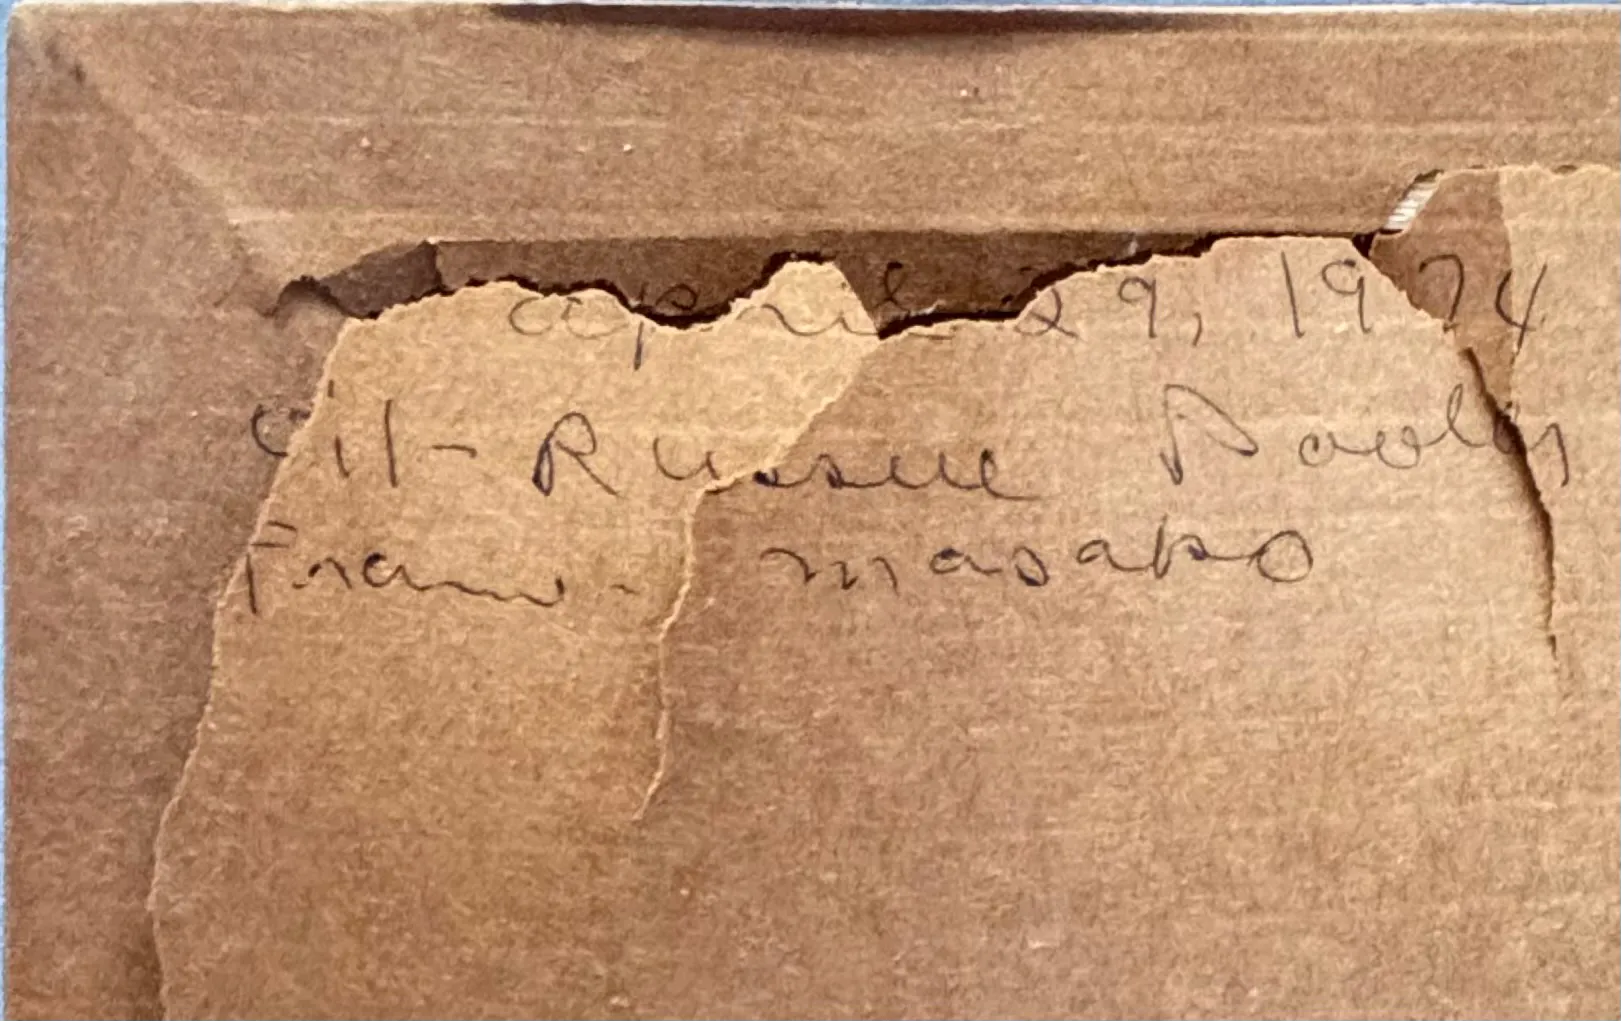 april 29, 1974
Oil - Russell Dooley
Frame - masako